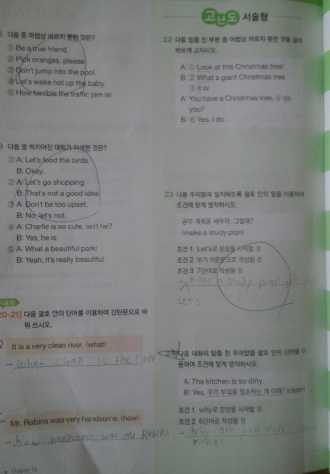 다음 중 어법상 바르지 못한 것은?
① Be a true friend.
② Pick oranges, please.
③ Don't jump into the pool.
④ Let's wake not up the baby.
⑤ How terrible the traffic jam is!
다음 중 짝지어진 대화가 어색한 것은?
① A: Let's feed the birds.
B: Okay.
② A: Let's go shopping.
B: That's not a good idea.
③ A: Don't be too upset.
B: No, let's not.
④ A: Charlie is so cute, isn't he?
B: Yes, he is.
⑤ A: What a beautiful park!
B: Yeah, it's really beautiful.
20-21] 다음 괄호 안의 단어를 이용하여 감탄문으로 바
꿔 쓰시오.
It is a very clean river. (what)
what clean is the river
Mr. Robins was very handsome. (how)
how handsome was Mr. Robins
고난도 서술형
22 다음 밑줄 친 부분 중 어법상 바르지 못한 것을 골라
바르게 고치시오.
A: ① Look at this Christmas tree!
B: ② What a giant Christmas tree
③ it is!
A: You have a Christmas tree, ④ do
you?
B: ⑤ Yes, I do.
23 다음 우리말과 일치하도록 괄호 안의 말을 이용하여
조건에 맞게 영작하시오.
공부 계획을 세우자, 그럴래?
(make a study plan)
조건 1 Let's로 문장을 시작할 것
조건 2 부가 의문문으로 작성할 것
조건 3 7단어로 작성할 것
make a study plan
Let's
다음 대화의 밑줄 친 우리말을 괄호 안의 단어를 이
용하여 조건에 맞게 영작하시오.
A: The kitchen is so dirty.
B: Yes. 우리 부엌을 청소하는 게 어때? (clean)
조건 1 why로 문장을 시작할 것
조건 2 6단어로 작성할 것
why